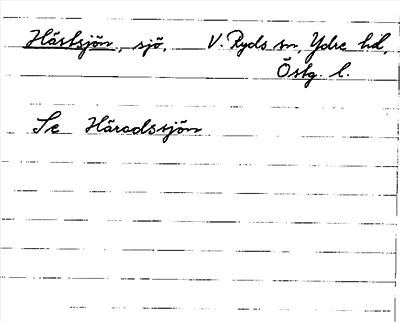 Härtsjön, sjö, V. Ryds sn, Ydre hd,
Östg. l.
Se Häradssjön